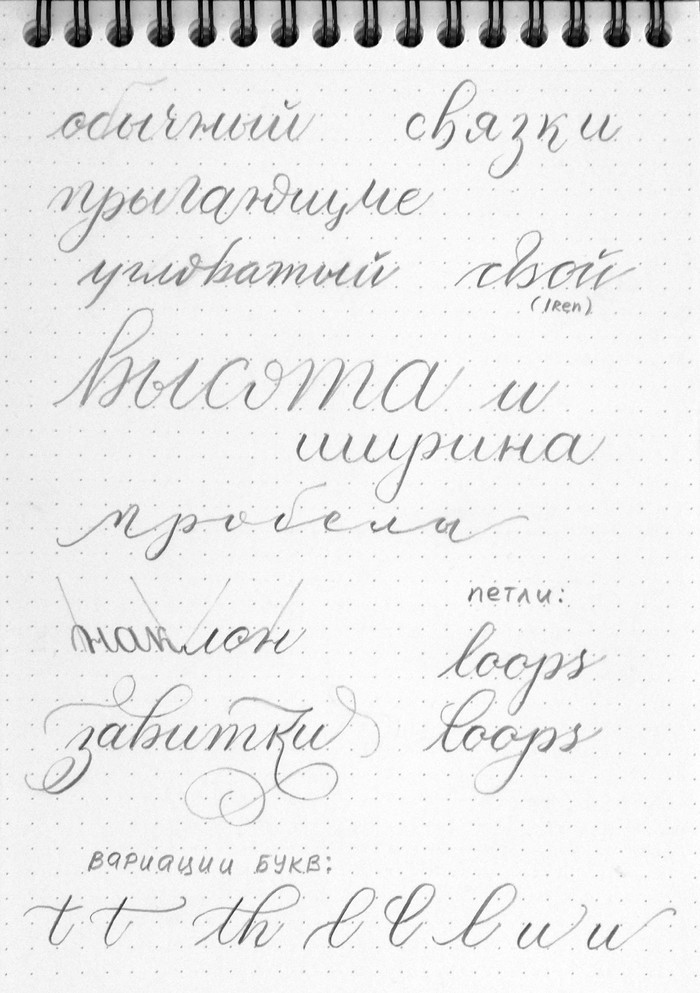 обычный связки
прыгающие
угловатый свой
(IRen)
высота и
ширина
пробелы
наклон
петли:
loops
завитки loops
вариации букв:
t t th l l l w u